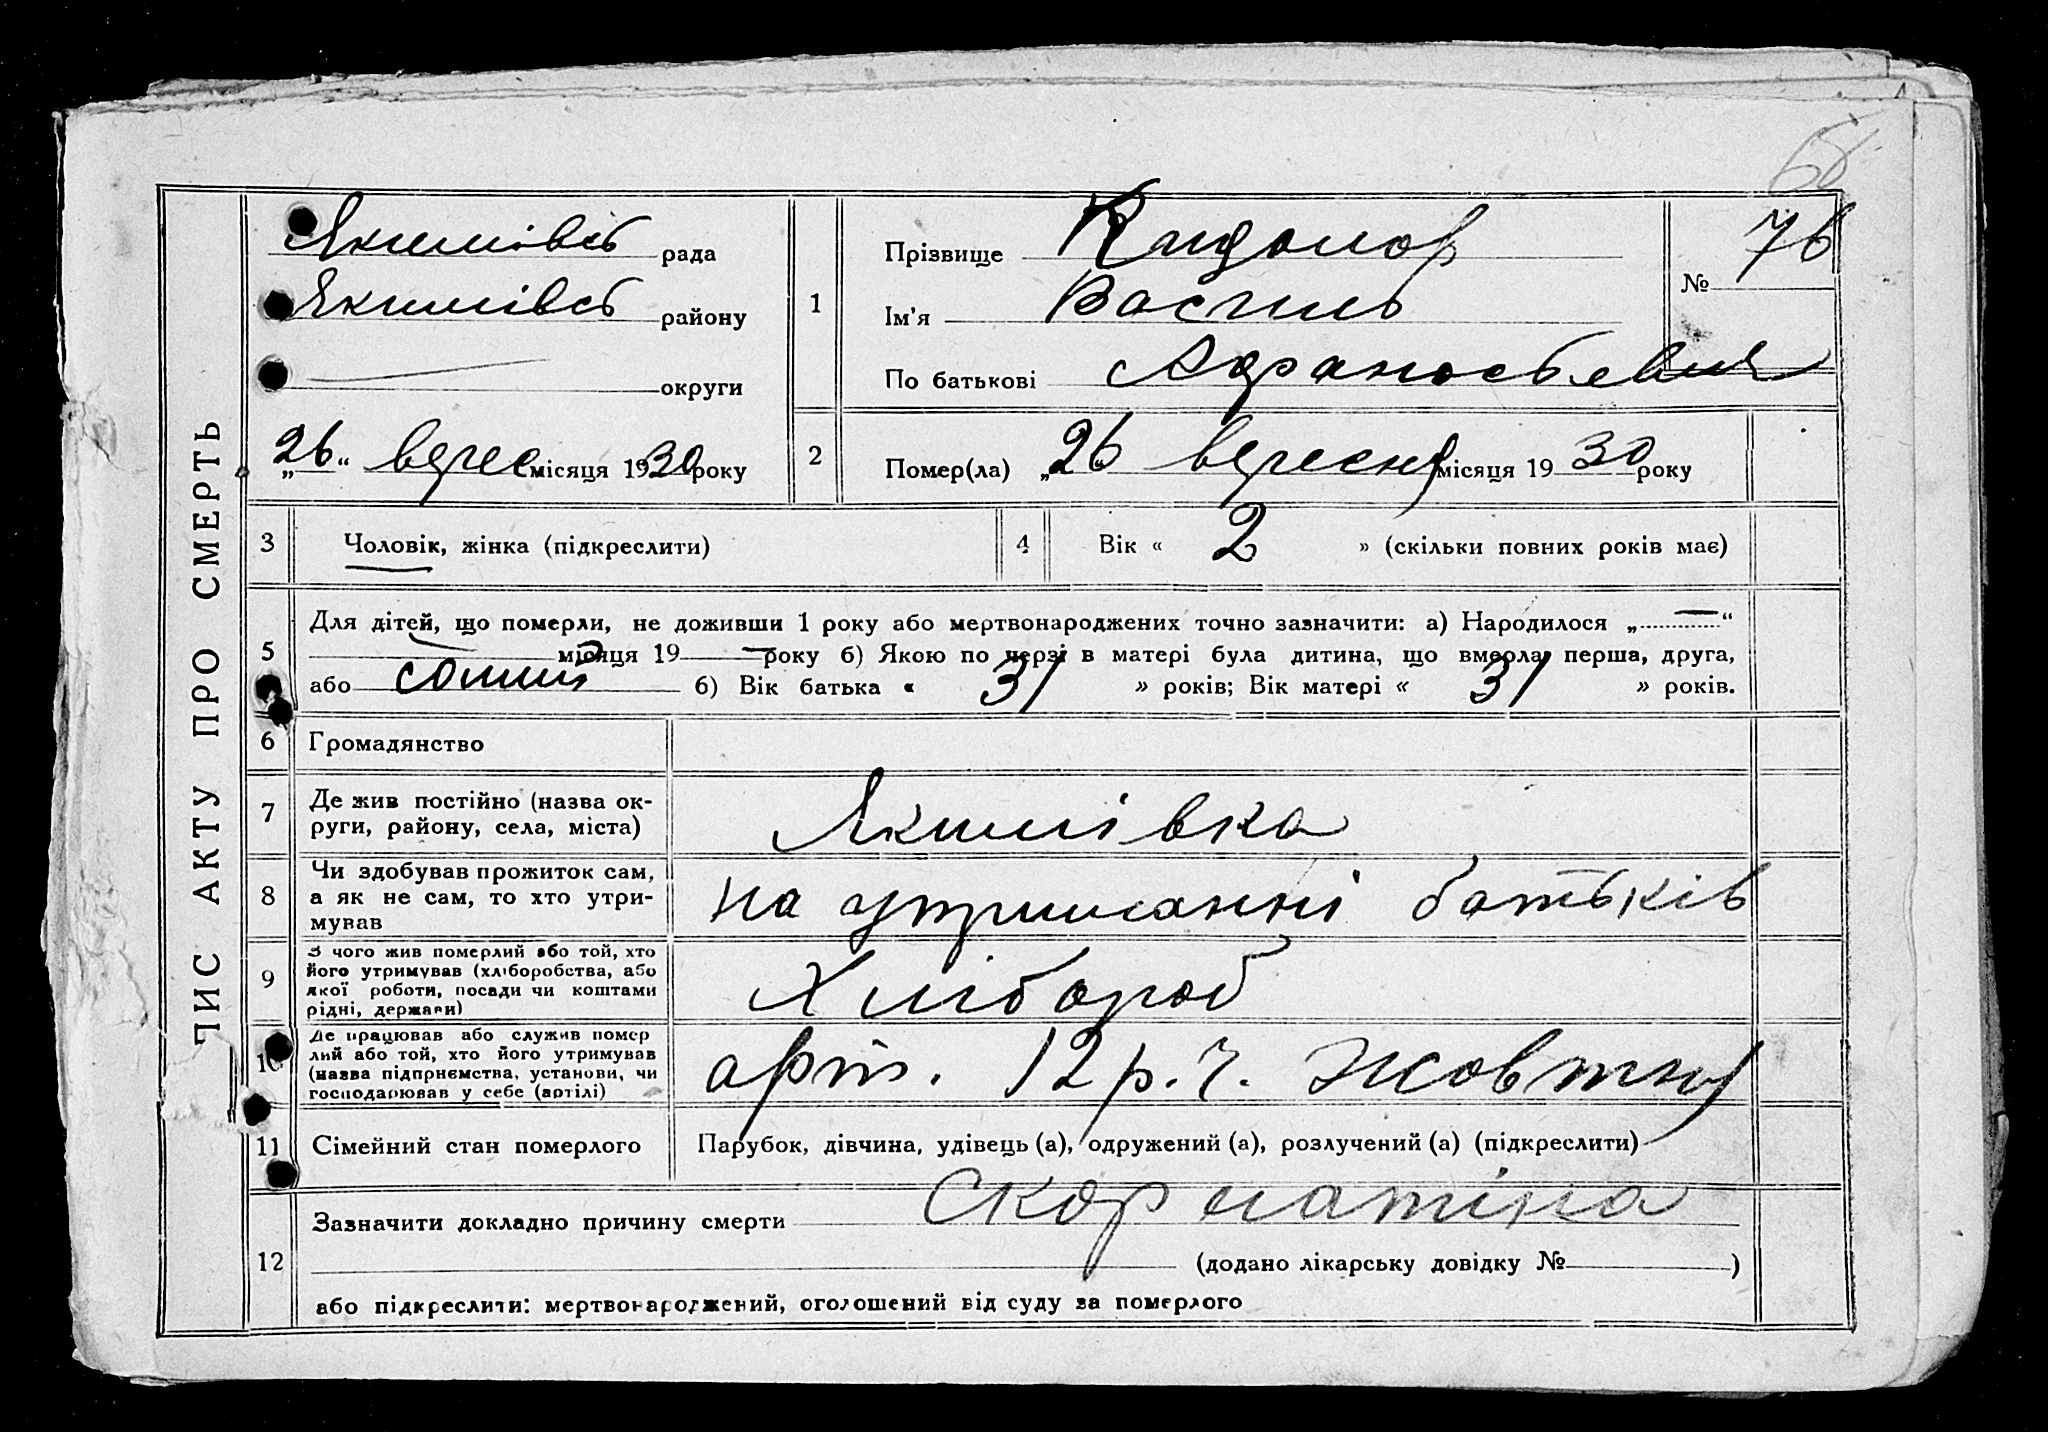 68
ПИС АКТУ ПРО СМЕРТЬ
Якимівсь рада
Якимівсь району
округи
„26“ верес місяця 1930 року
1
Прізвище
Ім'я Василь
По батькові
№ 76
2
Помер(ла) „26“ вересня місяця 1930 року
3
Чоловік, жінка (підкреслити)
4
Вік « 2 » (скільки повних років має)
5
Для дітей, що померли, не доживши 1 року або мертвонароджених точно зазначити: а) Народилося „—“
місяця 19— року б) Якою по черзі в матері була дитина, що вмерла перша, друга,
або б) Вік батька « 31 » років; Вік матері « 31 » років.
6
Громадянство
7
Де жив постійно (назва ок-
руги, району, села, міста)
Якимівка
8
Чи здобував прожиток сам,
а як не сам, то хто утри-
мував
на утриманні батьків
9
З чого жив померлий або той, хто
його утримував (хліборобства, або
якої роботи, посади чи коштами
рідні, держави)
Хлібороб
10
Де працював або служив помер
лий або той, хто його утримував
(назва підприємства, установи, чи
господарював у себе (артілі)
арт. 12 р. ч. Жовтня
11
Сімейний стан померлого
Парубок, дівчина, удівець (а), одружений (а), розлучений (а) (підкреслити)
12
Зазначити докладно причину смерти скорлатіна
(додано лікарську довідку № )
або підкреслити: мертвонароджений, оголошений від суду за померлого